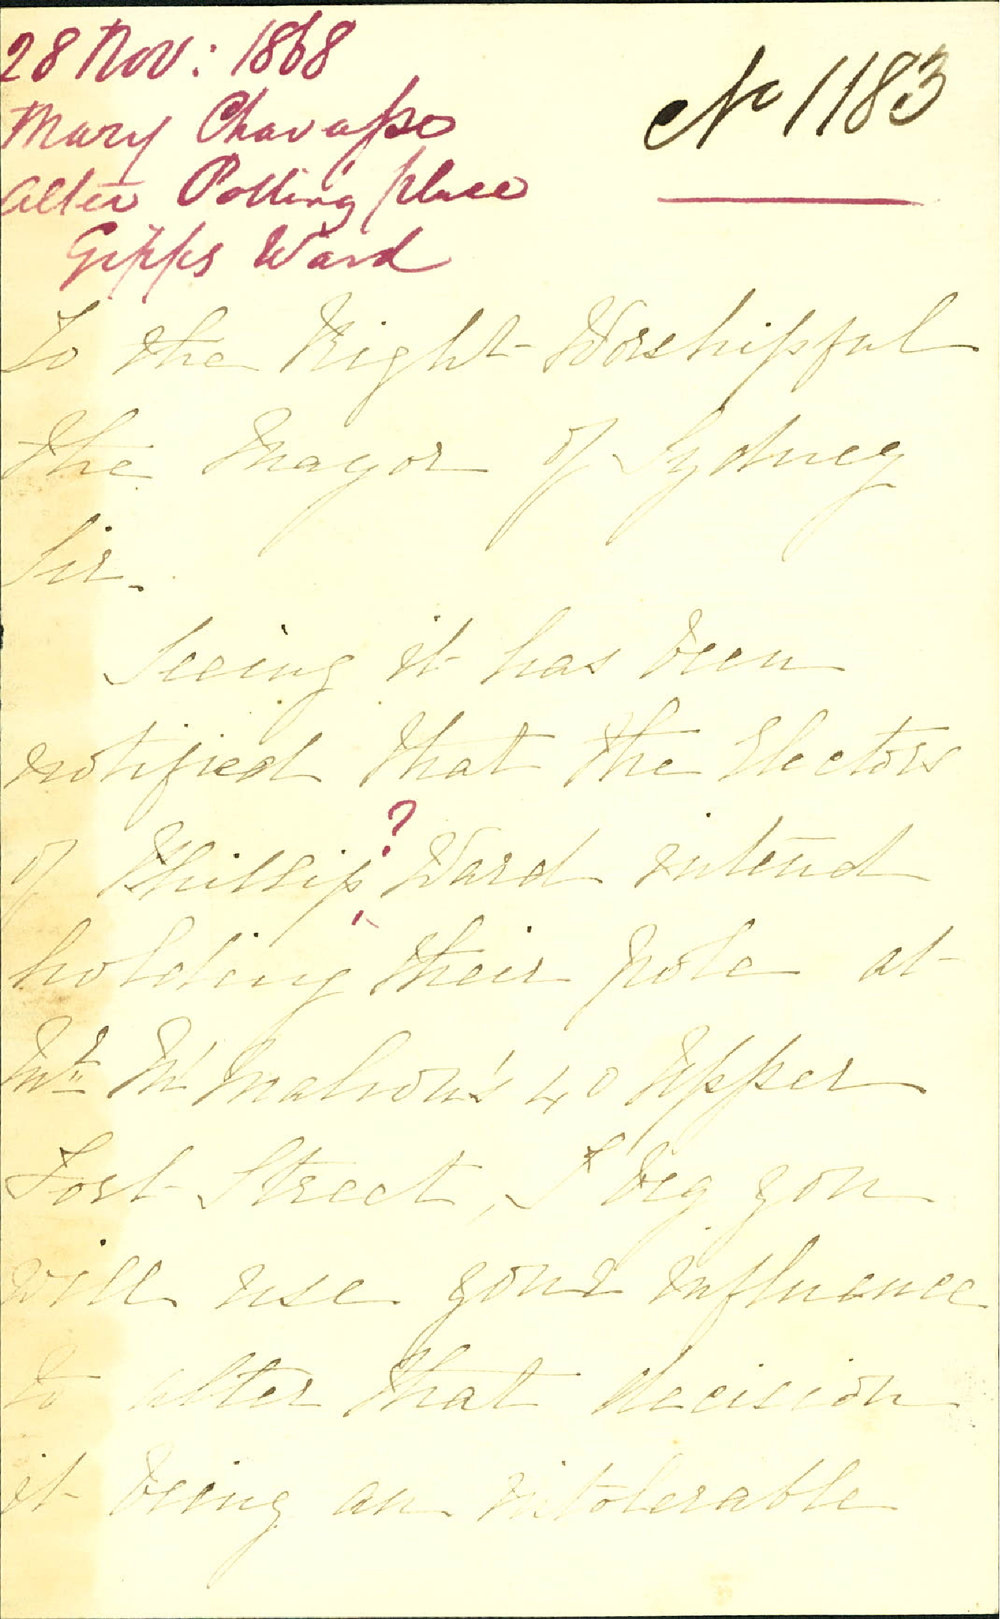 28 Nov: 1868
Mary Chavasse
alter Polling place
Gipps Ward
No 1183
To the Right Worshipful
the Mayor of Sydney
Sir.
Seeing it has been
notified that the Electors
?
of Phillip Ward intend
holding their pole at
Mrs McMahon's 40 Upper
Fort Street, I beg you
will use your influence
to alter that decision
it being an intolerable